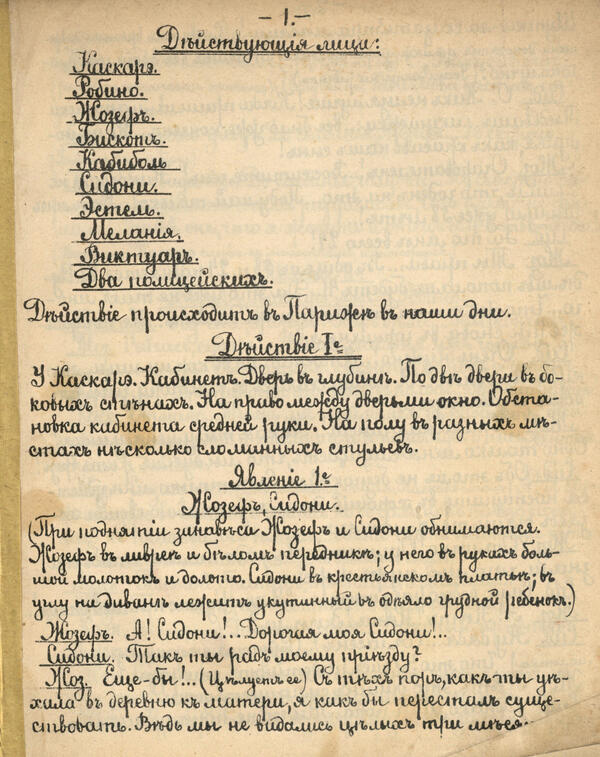 — 1. —
Дѣйствующія лица:
Каскарэ.
Робино.
Жозефъ.
Бискотъ.
Кабиболь
Сидони.
Эстель.
Меланія.
Виктуаръ.
Два полицейскихъ.
Дѣйствіе происходитъ въ Парижѣ въ наши дни.
Дѣйствіе Iе
У Каскарэ. Кабинетъ. Дверь въ глубинѣ. По двѣ двери въ бо-
ковыхъ стѣнахъ. На право между дверьми окно. Обста-
новка кабинета средней руки. На полу въ разныхъ мѣ-
стахъ нѣсколько сломанныхъ стульевъ.
Явленіе 1е
Жозефъ, Сидони.
(При поднятіи занавѣса Жозефъ и Сидони обнимаются.
Жозефъ въ ливреѣ и бѣломъ передникѣ; у него въ рукахъ боль-
шой молотокъ и долото. Сидони въ крестьянскомъ платьѣ; въ
углу на диванѣ лежитъ укутанный въ одѣяло грудной ребенокъ.)
Жозефъ. А! Сидони!.. Дорогая моя Сидони!..
Сидони. Такъ ты радъ моему пріѣзду?
Жоз. Еще-бы!.. (Цѣлуетъ ее) Съ тѣхъ поръ, какъ ты уѣ-
хала въ деревню къ матери, я какъ бы пересталъ суще-
ствовать. Вѣдь мы не видались цѣлыхъ три мѣся-